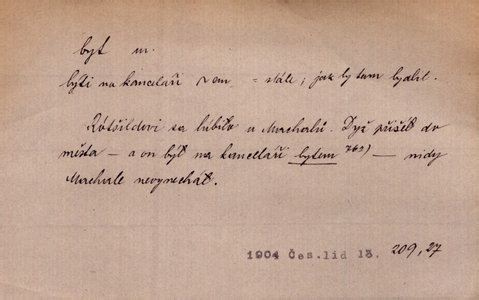 byt m.
býti na kanceláři ~em = stále, jak by tam bydlil.
Rótšildovi sa lúbilo u Macharlů. Dyž přišét do
města — a on býł na kanceláři bytem 762) — nidy
Machale nevynecháł.
1904 Čes.lid 13. 209,27